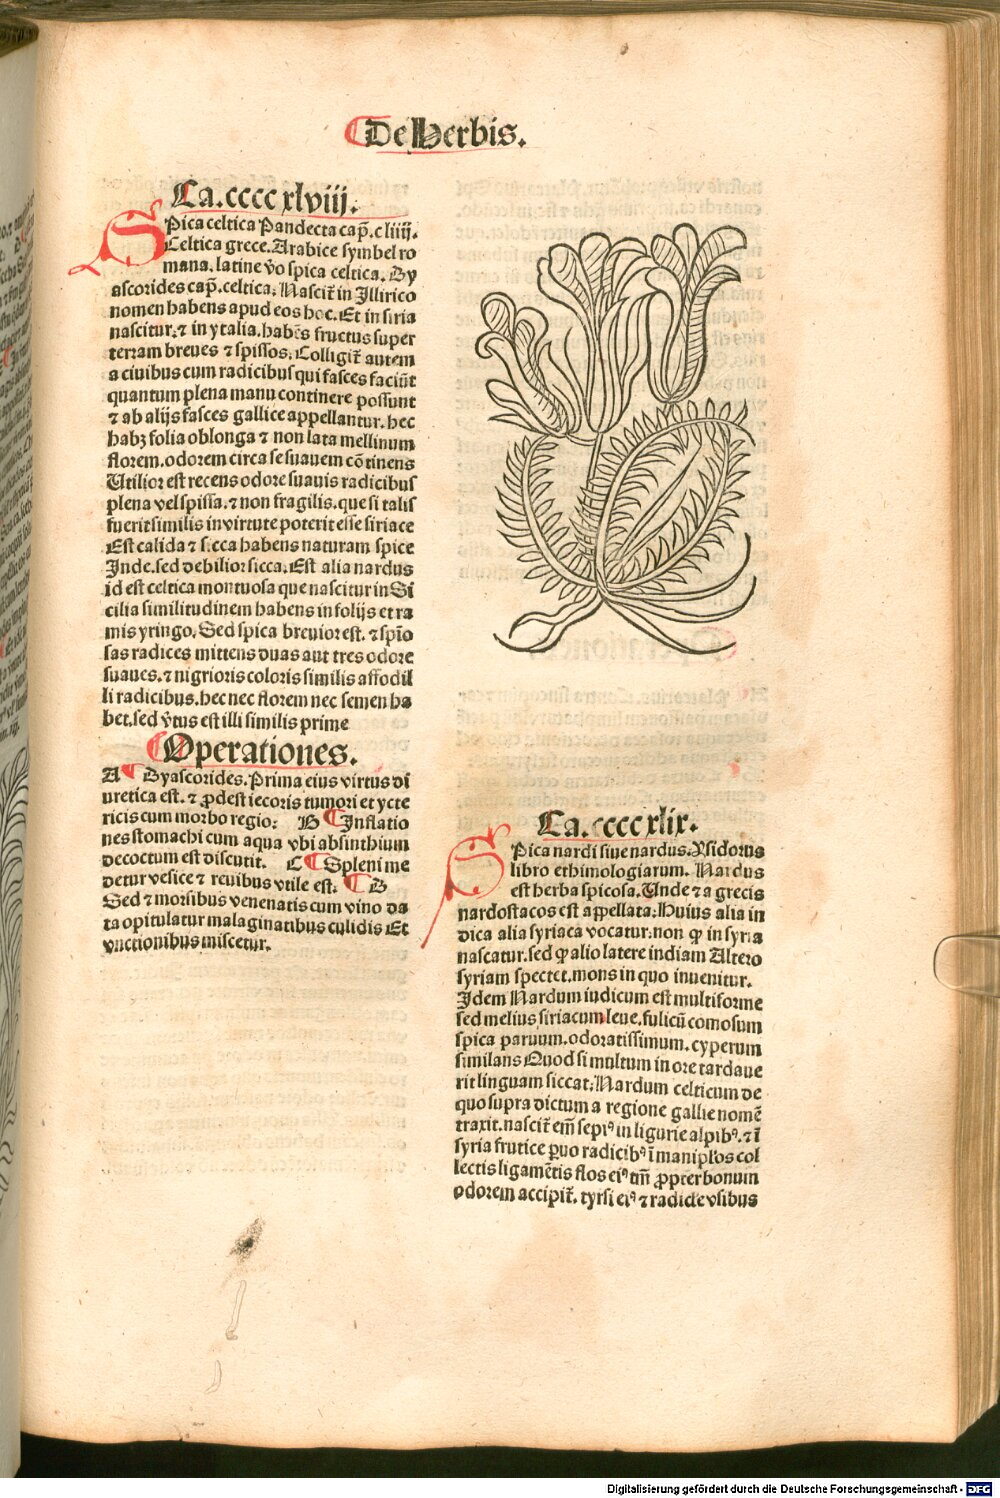 De Herbis.
Ca.cccc xlviij.
SPica celtica Pandecta cap̄.cliiij.
Celtica grece. Arabice symbel ro
mana. latine v̄o spica celtica. Dy
ascorides cap̄. celtica. Nascit̄ in Illirico
nomen habens apud eos hoc. Et in siria
nascitur. ⁊ in ytalia. habēs fructus super
terram breues ⁊ spissos. Colligit̄ autem
a ciuibus cum radicibus qui fasces faciūt
quantum plena manu continere possunt
⁊ ab alijs fasces gallice appellantur. hec
habꝫ folia oblonga ⁊ non lata mellinum
florem. odorem circa se suauem cōtinens
Utilior est recens odore suauis radicibus
plena vel spissa. ⁊ non fragilis. que si talis
fuerit similis in virtute poterit esse siriace
Est calida ⁊ sicca habens naturam spice
Inde. sed debilior sicca. Est alia nardus
id est celtica montuosa que nascitur in Si
cilia similitudinem habens in folijs et ra
mis yringo. Sed spica breuior est. ⁊ spīo
sas radices mittens duas aut tres odore
suaues. ⁊ nigrioris coloris similis affodil
li radicibus. hec nec florem nec semen ha
bet. sed v̄tus est illi similis prime
Operationes.
A Dyascorides. Prima eius virtus di
uretica est. ⁊ ꝓdest iecoris tumori et ycte
ricis cum morbo regio. B Inflatio
nes stomachi cum aqua vbi absinthium
decoctum est discutit. C Spleni me
detur vesice ⁊ renibus vtile est. D
Sed ⁊ morsibus venenatis cum vino da
ta opitulatur malaginatibus culidis Et
vnctionibus miscetur.
Ca.cccc xlix.
SPica nardi siue nardus. Ysidorus
libro ethimologiarum. Nardus
est herba spicosa. Unde ⁊ a grecis
nardostacos est appellata. Huius alia in
dica alia syriaca vocatur. non ꝙ in syria
nascatur. sed ꝙ alio latere indiam Altero
syriam spectet. mons in quo inuenitur.
Idem Nardum iudicum est multiforme
sed melius siriacum leue. fulicū comosum
spica paruum. odoratissimum. cyperum
similans Quod si multum in ore tardaue
rit linguam siccat. Nardum celticum de
quo supra dictum a regione gallie nomē
traxit. nascit̄ em̄ sepiꝰ in ligurie alpibꝰ. ⁊ ī
syria frutice ꝑuo radicibꝰ ī maniplos col
lectis ligamētis flos eiꝰ tm̄ ꝓpter bonum
odorem accipit̄. tyrsi eiꝰ ⁊ radice vsibus
Digitalisierung gefördert durch die Deutsche Forschungsgemeinschaft - DFG